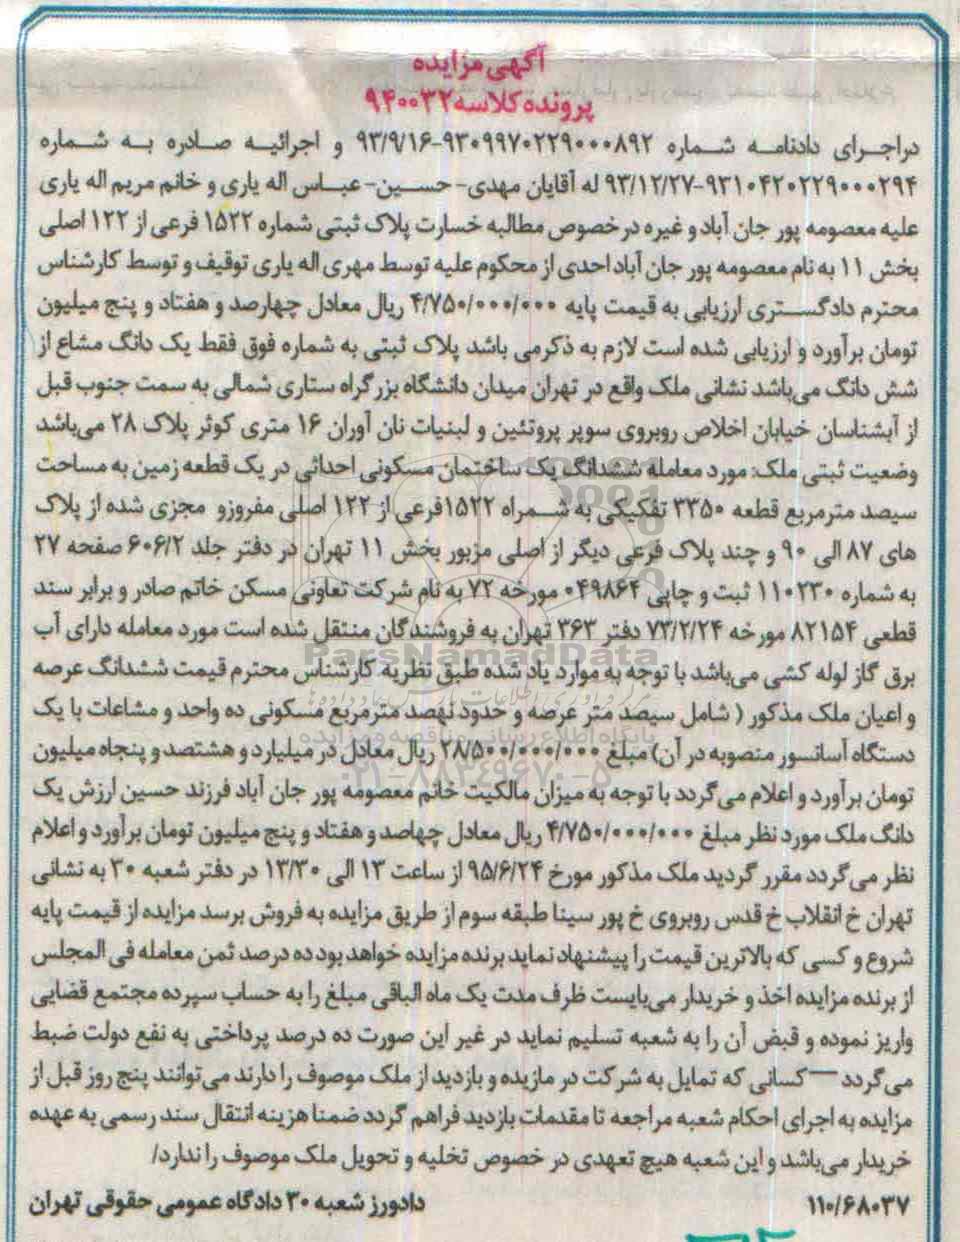 آگهی مزایده
پرونده کلاسه ۹۴۰۰۳۲
دراجرای دادنامه شماره ۹۳۰۹۹۷۰۲۲۹۰۰۰۸۹۲-۹۳/۹/۱۶ و اجرائیه صادره به شماره
۹۳۱۰۴۲۰۲۲۹۰۰۰۲۹۴-۹۳/۱۲/۲۷ له آقایان مهدی- حسین- عباس اله یاری و خانم مریم اله یاری
علیه معصومه پور جان آباد و غیره درخصوص مطالبه خسارت پلاک ثبتی شماره ۱۵۲۲ فرعی از ۱۲۲ اصلی
بخش ۱۱ به نام معصومه پور جان آباد احدی از محکوم علیه توسط مهری اله یاری توقیف و توسط کارشناس
محترم دادگستری ارزیابی به قیمت پایه ۴/۷۵۰/۰۰۰/۰۰۰ ریال معادل چهارصد و هفتاد و پنج میلیون
تومان برآورد و ارزیابی شده است لازم به ذکرمی باشد پلاک ثبتی به شماره فوق فقط یک دانگ مشاع از
شش دانگ می‌باشد نشانی ملک واقع در تهران میدان دانشگاه بزرگراه ستاری شمالی به سمت جنوب قبل
از آبشناسان خیابان اخلاص روبروی سوپر پروتئین و لبنیات نان آوران ۱۶ متری کوثر پلاک ۲۸ می‌باشد
وضعیت ثبتی ملک: مورد معامله ششدانگ یک ساختمان مسکونی احداثی در یک قطعه زمین به مساحت
سیصد مترمربع قطعه ۳۳۵۰ تفکیکی به شمراه ۱۵۲۲فرعی از ۱۲۲ اصلی مفروزو مجزی شده از پلاک
های ۸۷ الی ۹۰ و چند پلاک فرعی دیگر از اصلی مزبور بخش ۱۱ تهران در دفتر جلد ۶۰۶/۲ صفحه ۲۷
به شماره ۱۱۰۲۳۰ ثبت و چاپی ۰۴۹۸۶۴ مورخه ۷۲ به نام شرکت تعاونی مسکن خاتم صادر و برابر سند
قطعی ۸۲۱۵۴ مورخه ۷۳/۲/۲۴ دفتر ۳۶۳ تهران به فروشندگان منتقل شده است مورد معامله دارای آب
برق گاز لوله کشی می‌باشد با توجه به موارد یاد شده طبق نظریه کارشناس محترم قیمت ششدانگ عرصه
و اعیان ملک مذکور ( شامل سیصد متر عرصه و حدود نهصد مترمربع مسکونی ده واحد و مشاعات با یک
دستگاه آسانسور منصوبه در آن) مبلغ ۲۸/۵۰۰/۰۰۰/۰۰۰ ریال معادل در میلیارد و هشتصد و پنجاه میلیون
تومان برآورد و اعلام می‌گردد با توجه به میزان مالکیت خانم معصومه پور جان آباد فرزند حسین ارزش یک
دانگ ملک مورد نظر مبلغ ۴/۷۵۰/۰۰۰/۰۰۰ ریال معادل چهاصد و هفتاد و پنج میلیون تومان برآورد و اعلام
نظر می‌گردد مقرر گردید ملک مذکور مورخ ۹۵/۶/۲۴ از ساعت ۱۳ الی ۱۳/۳۰ در دفتر شعبه ۳۰ به نشانی
تهران خ انقلاب خ قدس روبروی خ پور سینا طبقه سوم از طریق مزایده به فروش برسد مزایده از قیمت پایه
شروع و کسی که بالاترین قیمت را پیشنهاد نماید برنده مزایده خواهد بود ده درصد ثمن معامله فی المجلس
از برنده مزایده اخذ و خریدار می‌بایست ظرف مدت یک ماه الباقی مبلغ را به حساب سپرده مجتمع قضایی
واریز نموده و قبض آن را به شعبه تسلیم نماید در غیر این صورت ده درصد پرداختی به نفع دولت ضبط
می‌گردد — کسانی که تمایل به شرکت در مازیده و بازدید از ملک موصوف را دارند می‌توانند پنج روز قبل از
مزایده به اجرای احکام شعبه مراجعه تا مقدمات بازدید فراهم گردد ضمنا هزینه انتقال سند رسمی به عهده
خریدار می‌باشد و این شعبه هیچ تعهدی در خصوص تخلیه و تحویل ملک موصوف را ندارد/
۱۱۰/۶۸۰۳۷ دادورز شعبه ۳۰ دادگاه عمومی حقوقی تهران
ParsNamadData
پایگاه اطلاع رسانی مناقصه و مزایده
۰۲۱-۸۸۳۴۹۶۷۰-۵